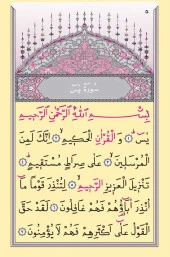 ٥
سُورَةُ يٰسٓ
بِسْمِ اللّٰهِ الرَّحْمٰنِ الرَّحِيمِ
يٰسٓ ﴿١﴾ وَالْقُرْاٰنِ الْحَكِيمِ ﴿٢﴾ اِنَّكَ لَمِنَ
الْمُرْسَلِينَ ﴿٣﴾ عَلٰى صِرَاطٍ مُسْتَقِيمٍ ﴿٤﴾
تَنْزِيلَ الْعَزِيزِ الرَّحِيمِ ﴿٥﴾ لِتُنْذِرَ قَوْمًا مَٓا
اُنْذِرَ اٰبَٓاؤُ۬هُمْ فَهُمْ غَافِلُونَ ﴿٦﴾ لَقَدْ حَقَّ
الْقَوْلُ عَلٰٓى اَكْثَرِهِمْ فَهُمْ لَا يُؤْمِنُونَ ﴿٧﴾